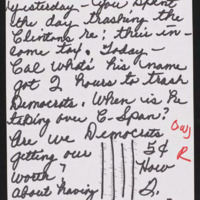 Yesterday - You spent
the day trashing the
Clintons re; their in-
come tax. Today -
Cal Whats' his name
got 2 hours to trash
Democrats. When is he
taking over C-Span?
Are we Democrats
getting our 5¢
worth? How
about having
R